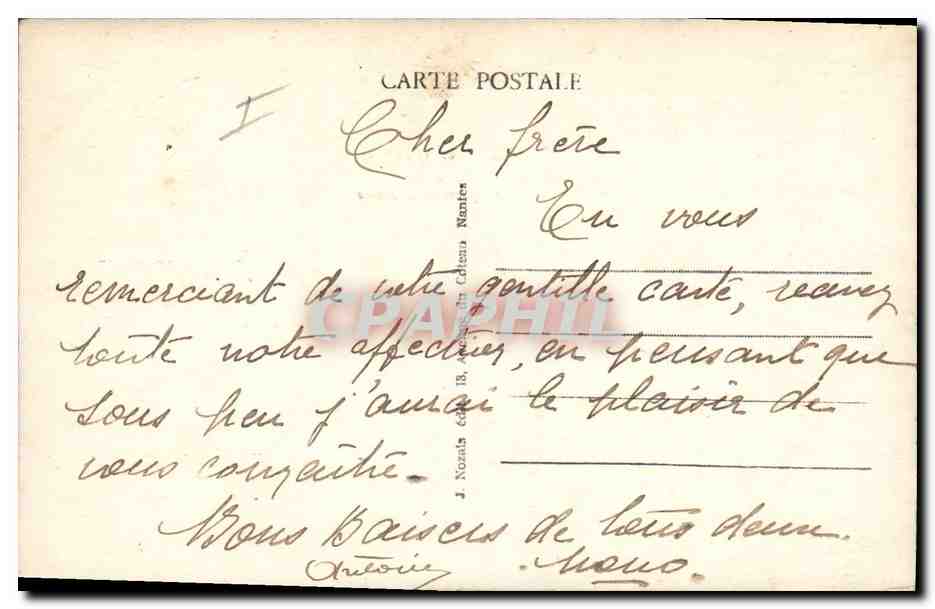 CARTE POSTALE
I
Cher frère
En vous
remerciant de votre gentille carte, recevez
toute notre affection, en pensant que
sous peu j'aurai le plaisir de
vous connaitre.
Bons Baisers de tous deux.
Antoine Nono.
J. Nozais édit. 13, du Coteau Nantes
CPAPHIL